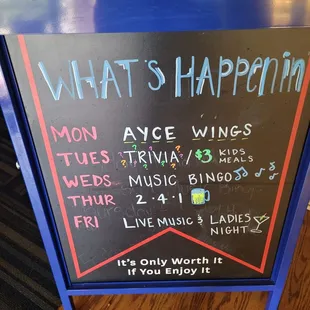 WHAT'S HAPPENIN'
MON AYCE WINGS
TUES TRIVIA/$3 KIDS MEALS
WEDS MUSIC BINGO
THUR 2·4·1
FRI LIVE MUSIC & LADIES NIGHT
It's Only Worth It
If You Enjoy It